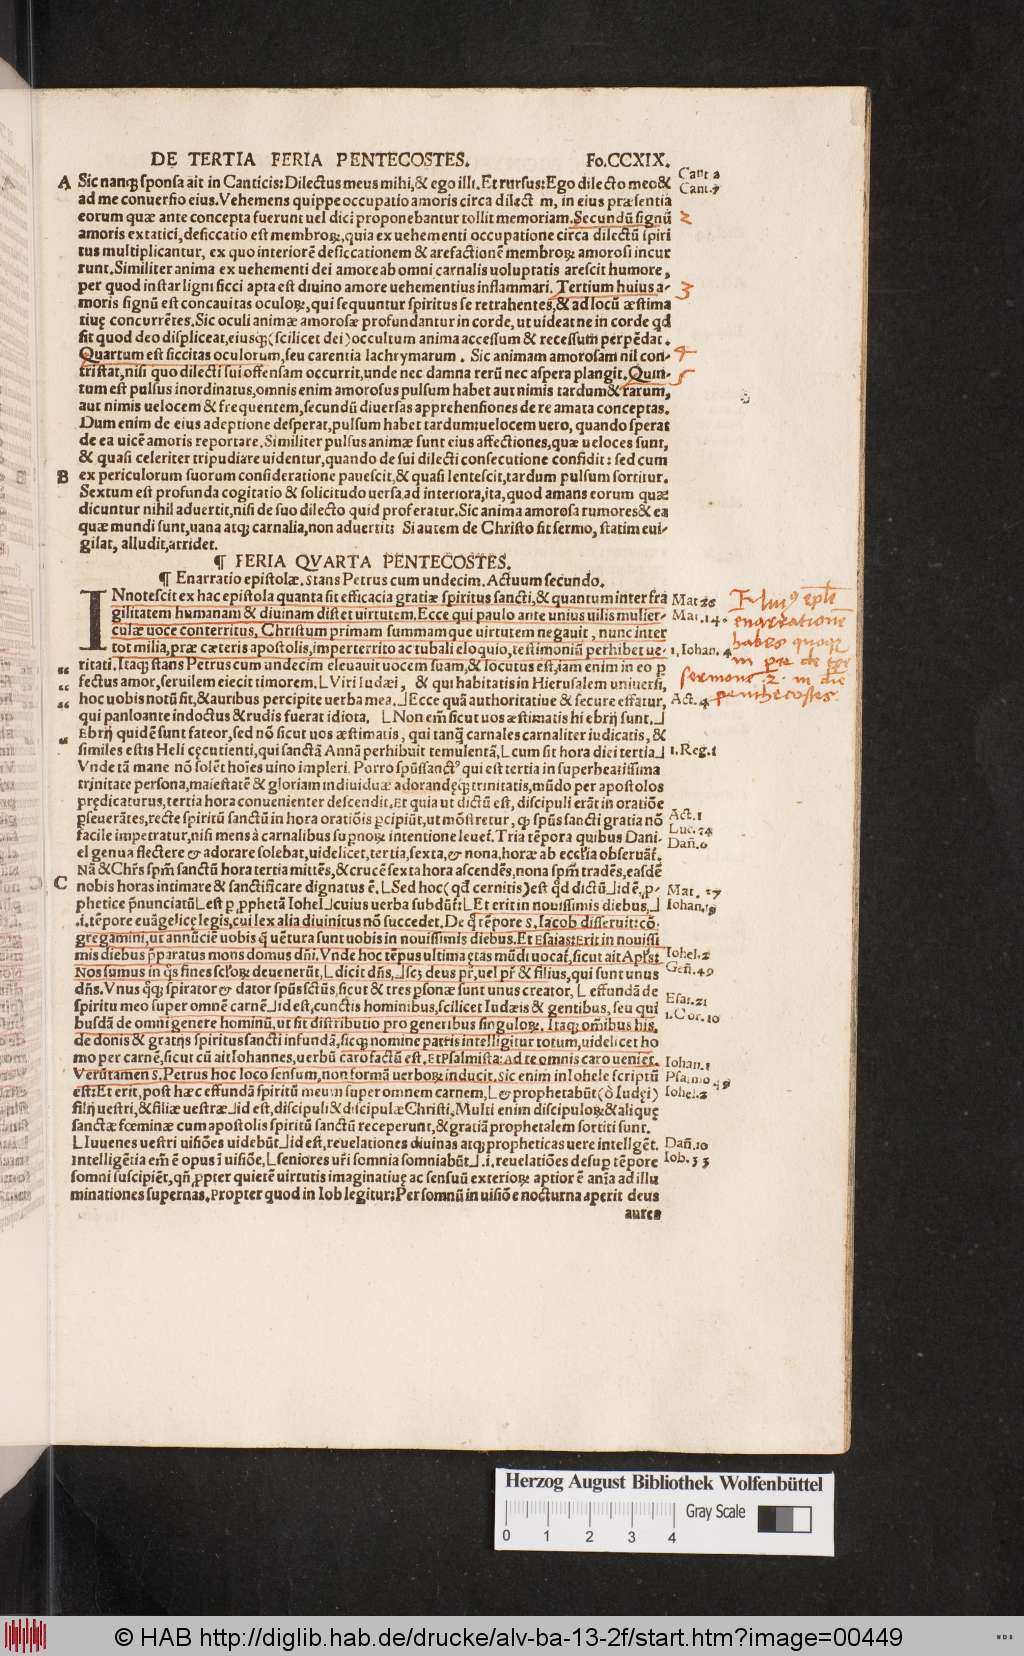 DE TERTIA FERIA PENTECOSTES. Fo.CCXIX.
A Sic nanq; sponsa ait in Canticis: Dilectus meus mihi, & ego illi. Et rursus: Ego dilecto meo & Cant 2
ad me conuersio eius. Vehemens quippe occupatio amoris circa dilect m, in eius præsentia Cant.7
eorum quæ ante concepta fuerunt uel dici proponebantur tollit memoriam. Secundũ signũ 2
amoris extatici, desiccatio est membroꝝ, quia ex uehementi occupatione circa dilectũ spiri
tus multiplicantur, ex quo interiorẽ desiccationem & arefactionẽ membroꝝ amorosi incur
runt. Similiter anima ex uehementi dei amore ab omni carnalis uoluptatis arescit humore,
per quod instar ligni sicci apta est diuino amore uehementius inflammari. Tertium huius a- 3
moris signũ est concauitas oculoꝝ, qui sequuntur spiritus se retrahentes, & ad locũ æstima
tiuę concurrẽtes. Sic oculi animæ amorosæ profundantur in corde, ut uideat ne in corde qđ
sit quod deo displiceat, eiusq; (scilicet dei) occultum anima accessum & recessum perpẽdat.
Quartum est siccitas oculorum, seu carentia lachrymarum. Sic animam amorosam nil con- 4
tristat, nisi quo dilecti sui offensam occurrit, unde nec damna rerũ nec aspera plangit. Quin- 5
tum est pulsus inordinatus, omnis enim amorosus pulsum habet aut nimis tardum & rarum,
aut nimis uelocem & frequentem, secundũ diuersas apprehensiones de re amata conceptas.
Dum enim de eius adeptione desperat, pulsum habet tardum: uelocem uero, quando sperat
de ea uicẽ amoris reportare. Similiter pulsus animæ sunt eius affectiones, quæ ueloces sunt,
& quasi celeriter tripudiare uidentur, quando de sui dilecti consecutione confidit: sed cum
B ex periculorum suorum consideratione pauescit, & quasi lentescit, tardum pulsum sortitur.
Sextum est profunda cogitatio & solicitudo uersa, ad interiora, ita, quod amans eorum quæ
dicuntur nihil aduertit, nisi de suo dilecto quid proferatur. Sic anima amorosa rumores & ea
quæ mundi sunt, uana atq; carnalia, non aduertit: Si autem de Christo fit sermo, statim eui-
gilat, alludit, arridet.
¶ FERIA QVARTA PENTECOSTES.
¶ Enarratio epistolæ. Stans Petrus cum undecim. Actuum secundo.
INnotescit ex hac epistola quanta sit efficacia gratiæ spiritus sancti, & quantum inter fra Mat 26
gilitatem humanam & diuinam distet uirtutem. Ecce qui paulo ante unius uilis mulier- Mar.14.
culæ uoce conterritus, Christum primam summamque uirtutem negauit, nunc inter
tot milia, præ cæteris apostolis, imperterrito ac tubali eloquio, testimoniũ perhibet ue- 1.Iohan.4
ritati. Itaq; stans Petrus cum undecim eleuauit uocem suam, & locutus est, iam enim in eo p
fectus amor, seruilem eiecit timorem. L Viri Iudæi, & qui habitatis in Hierusalem uniuersi,
hoc uobis notũ sit, & auribus percipite uerba mea. ⅃ Ecce quã authoritatiue & secure effatur, Act.4
qui panloante indoctus & rudis fuerat idiota. L Non em̃ sicut uos æstimatis hi ebrij sunt. ⅃
Ebrij quidẽ sunt fateor, sed nõ sicut uos æstimatis, qui tanq̃ carnales carnaliter iudicatis, &
similes estis Heli cęcutienti, qui sanctã Annã perhibuit temulentã, L cum sit hora diei tertia ⅃ 1.Reg.1
Vnde tã mane nõ solẽt hoĩes uino impleri. Porro spũssanctꝰ qui est tertia in superbeatissima
trinitate persona, maiestatẽ & gloriam indiuiduæ adorandęq; trinitatis, mũdo per apostolos
prędicaturus, tertia hora conuenienter descendit. Et quia ut dictũ est, discipuli erãt in oratiõe
pseuerãtes, recte spiritũ sanctũ in hora oratiõis pcipiũt, ut mõstretur, q spũs sancti gratia nõ Act.1
facile impetratur, nisi mens à carnalibus supnoꝝ intentione leuet̃. Tria tẽpora quibus Dani- Luc.24
el genua flectere & adorare solebat, uidelicet, tertia, sexta, & nona, horæ ab ecclĩa obseruãt̃. Dañ.6
Nã & Chr̃s spm̃ sanctũ hora tertia mittẽs, & crucẽ sexta hora ascendẽs, nona spm̃ tradẽs, easdẽ
C nobis horas intimare & sanctificare dignatus ẽ. L Sed hoc (qđ cernitis) est qđ dictũ ⅃ idẽ, p- Mat. 27
phetice pnunciatũ L est p pphetã Iohel ⅃ cuius uerba subdũt̃: L Et erit in nouissimis diebus, ⅃ Iohan.19
.i. tẽpore euãgelicę legis, cui lex alia diuinitus nõ succedet. De q̃ tẽpore S. Iacob disseruit: cõ-
gregamini, ut annũciẽ uobis q̃ uẽtura sunt uobis in nouissimis diebus. Et Esaias: Erit in nouissi
mis diebus pparatus mons domus dñi. Vnde hoc tẽpus ultima ętas mũdi uocat̃, sicut ait Apl̃s: Iohel.2
Nos sumus in q̃s fines scl̃oꝝ deuenerũt, L dicit dñs, ⅃ scꝫ deus pr̃, uel pr̃ & filius, qui sunt unus Geñ.49
dñs. Vnus q̃q; spirator & dator spũs sctũs, sicut & tres psonæ sunt unus creator, L effundã de
spiritu meo super omnẽ carnẽ ⅃ id est, cunctis hominibus, scilicet Iudæis & gentibus, seu qui Esai.21
busdã de omni genere hominũ, ut sit distributio pro generibus singuloꝝ. Itaq; om̃ibus his, 1.Cor.10
de donis & gratijs spiritus sancti infundã, sicq; nomine partis intelligitur totum, uidelicet ho
mo per carnẽ, sicut cũ ait Iohannes, uerbũ caro factũ est. Et Psalmista: Ad te omnis caro ueniet. Iohan.1
Verũtamen S. Petrus hoc loco sensum, non formã uerboꝝ inducit. Sic enim in Iohele scriptũ Psalmo.49
est: Et erit, post hæc effundã spiritũ meum super omnem carnem, L & prophetabũt (ò Iudęi) Iohel.2
filij uestri, & filiæ uestræ ⅃ id est, discipuli & discipulæ Christi. Multi enim discipuloꝝ & aliquę
sanctæ fœminæ cum apostolis spiritũ sanctũ receperunt, & gratiã prophetalem sortiti sunt.
L Iuuenes uestri uisiões uidebũt ⅃ id est, reuelationes diuinas atq; propheticas uere intellgẽt. Dañ.10
Intelligẽtia em̃ ẽ opus ĩ uisiõe, L seniores ur̃i somnia somniabũt ⅃ .i. reuelatiões desup tẽpore Iob.33
somni suscipiẽt, qñ ppter quietẽ uirtutis imaginatiuę ac sensuũ exterioꝝ aptior ẽ anĩa ad illu
minationes supernas. Propter quod in Iob legitur: Per somnũ in uisiõe nocturna aperit deus
aures
enarrationẽ
habes quoq;
sermone 2 in die
penthecostes.
Herzog August Bibliothek Wolfenbüttel
Gray Scale
0 1 2 3 4
© HAB http://diglib.hab.de/drucke/alv-ba-13-2f/start.htm?image=00449